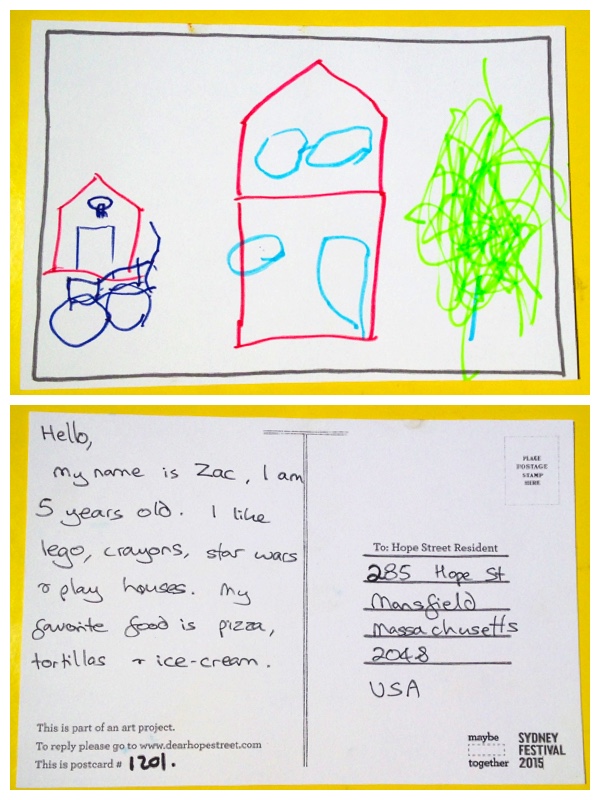 Hello,
my name is Zac, I am
5 years old. I like
lego, crayons, star wars
& play houses. My
favorite food is pizza,
tortillas & ice-cream.
This is part of an art project.
To reply please go to www.dearhopestreet.com
This is postcard # 1201.
PLACE
POSTAGE
STAMP
HERE
To: Hope Street Resident
285 Hope St
Mansfield
Massachusetts
2048
USA
maybe
together
SYDNEY
FESTIVAL
2015